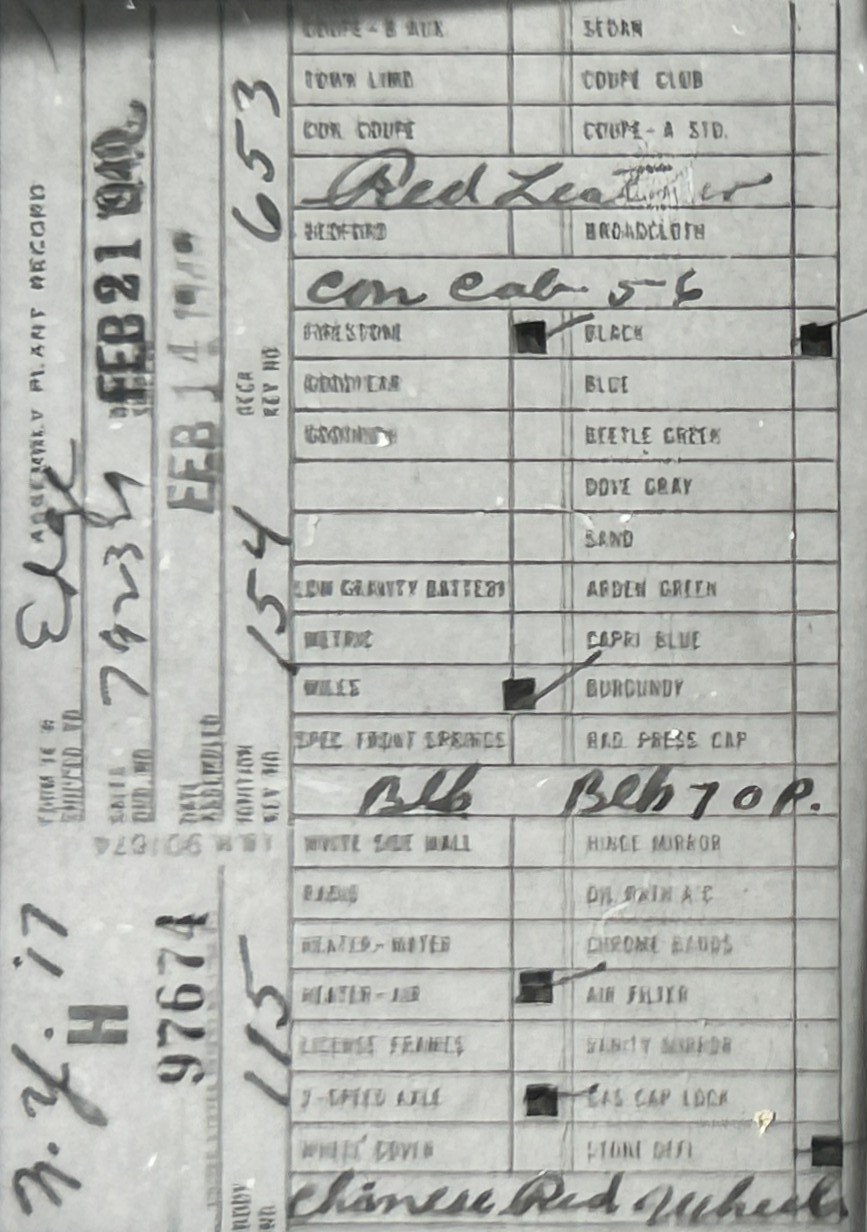 SEDAN
TOWN LIMO COUPE CLUB
CON COUPE COUPE-A STD.
Red Leather
BEDFORD BROADCLOTH
Con Cab 56
FIRESTONE BLACK
GOODYEAR BLUE
BEETLE GREEN
DOVE GRAY
SAND
LOW GRAVITY BATTERY ARDEN GREEN
METRIC CAPRI BLUE
MILES BURGUNDY
SPEC FRONT SPRINGS RAD PRESS CAP
Blk Blk 70 P.
WHITE SIDE WALL HINGE MIRROR
RADIO OIL BATH A C
HEATER-WATER CHROME BANDS
HEATER-AIR AIR FILTER
LICENSE FRAMES VANITY MIRROR
2-SPEED AXLE GAS CAP LOCK
WHEEL COVER STONE DEFL
Chinese Red Wheels
ASSEMBLY PLANT RECORD
Edge
FEB 21 1940
DATE
ORD. NO
FEB 14 1940
DATE
ASSEMBLED
653
KEY NO
154
IGNITION
KEY NO.
N.Y. 17
H
97674
115
BODY
NO